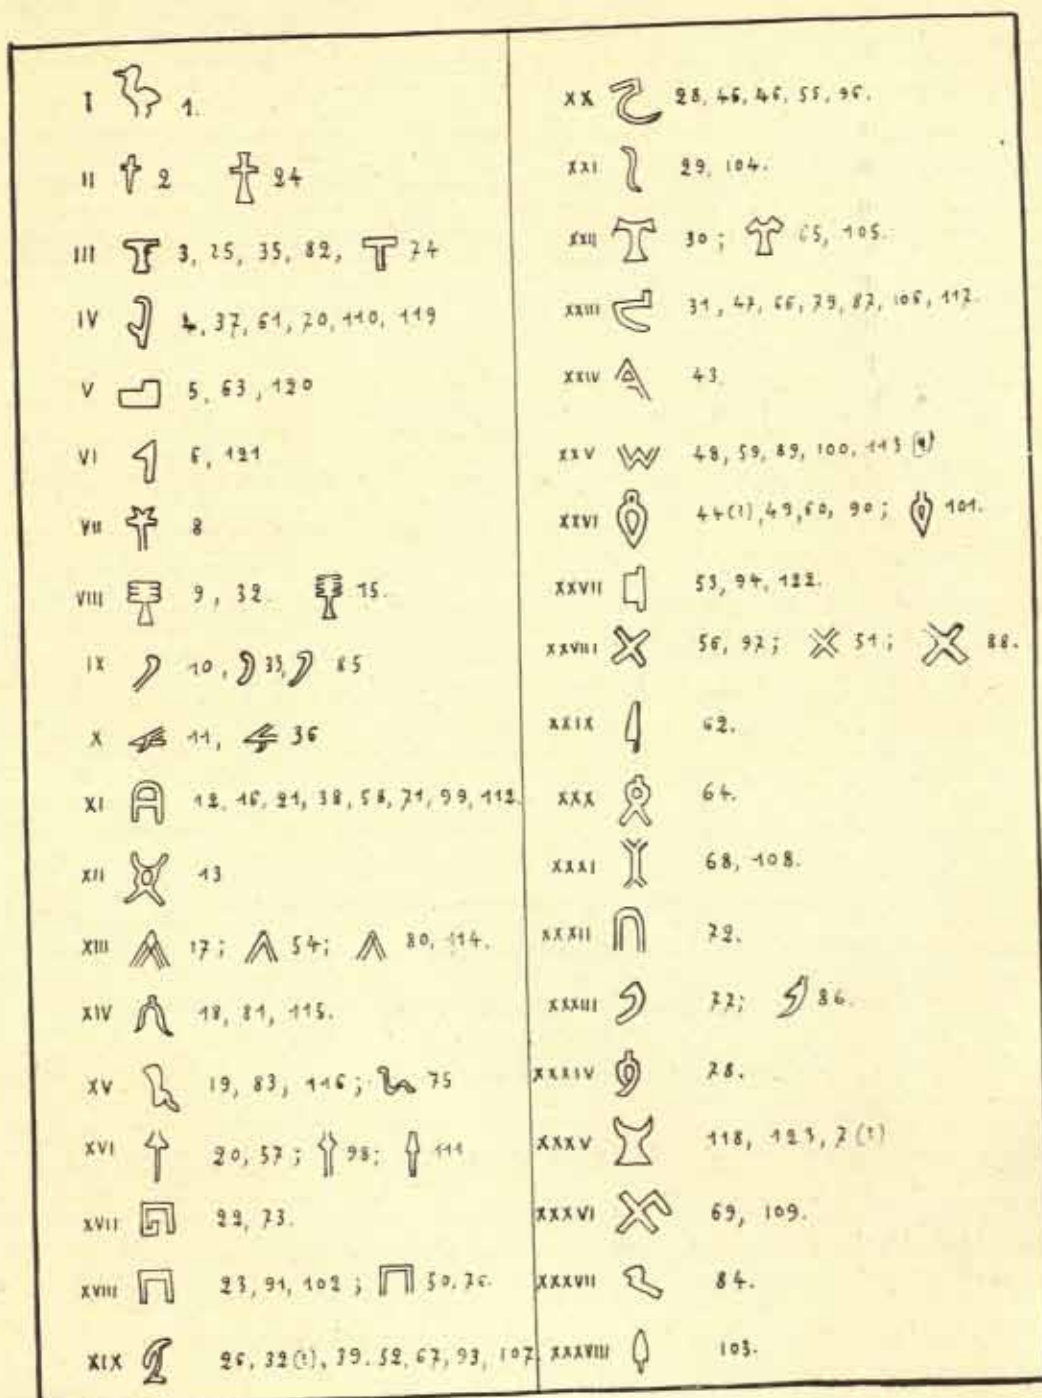 I 1.
II 2 24
III 3, 25, 35, 82, 74
IV 4, 37, 61, 70, 110, 119
V 5, 63, 120
VI 6, 121
VII 8
VIII 9, 32. 15.
IX 10, 33, 85
X 11, 36
XI 12, 16, 21, 38, 58, 71, 99, 112.
XII 13
XIII 17; 54; 80, 114.
XIV 18, 81, 115.
XV 19, 83, 116; 75
XVI 20, 57; 98; 111
XVII 22, 73.
XVIII 23, 91, 102; 50, 76.
XIX 26, 32(?), 39, 52, 67, 93, 107
XX 28, 46, 55, 96.
XXI 29, 104.
XXII 30; 65, 105.
XXIII 31, 47, 66, 79, 87, 106, 117.
XXIV 43.
XXV 48, 59, 89, 100, 113
XXVI 44(?), 49, 60, 90; 101.
XXVII 53, 94, 122.
XXVIII 56, 97; 51; 88.
XXIX 62.
XXX 64.
XXXI 68, 108.
XXXII 72.
XXXIII 77; 86.
XXXIV 78.
XXXV 118, 123, 7(?)
XXXVI 69, 109.
XXXVII 84.
XXXVIII 103.